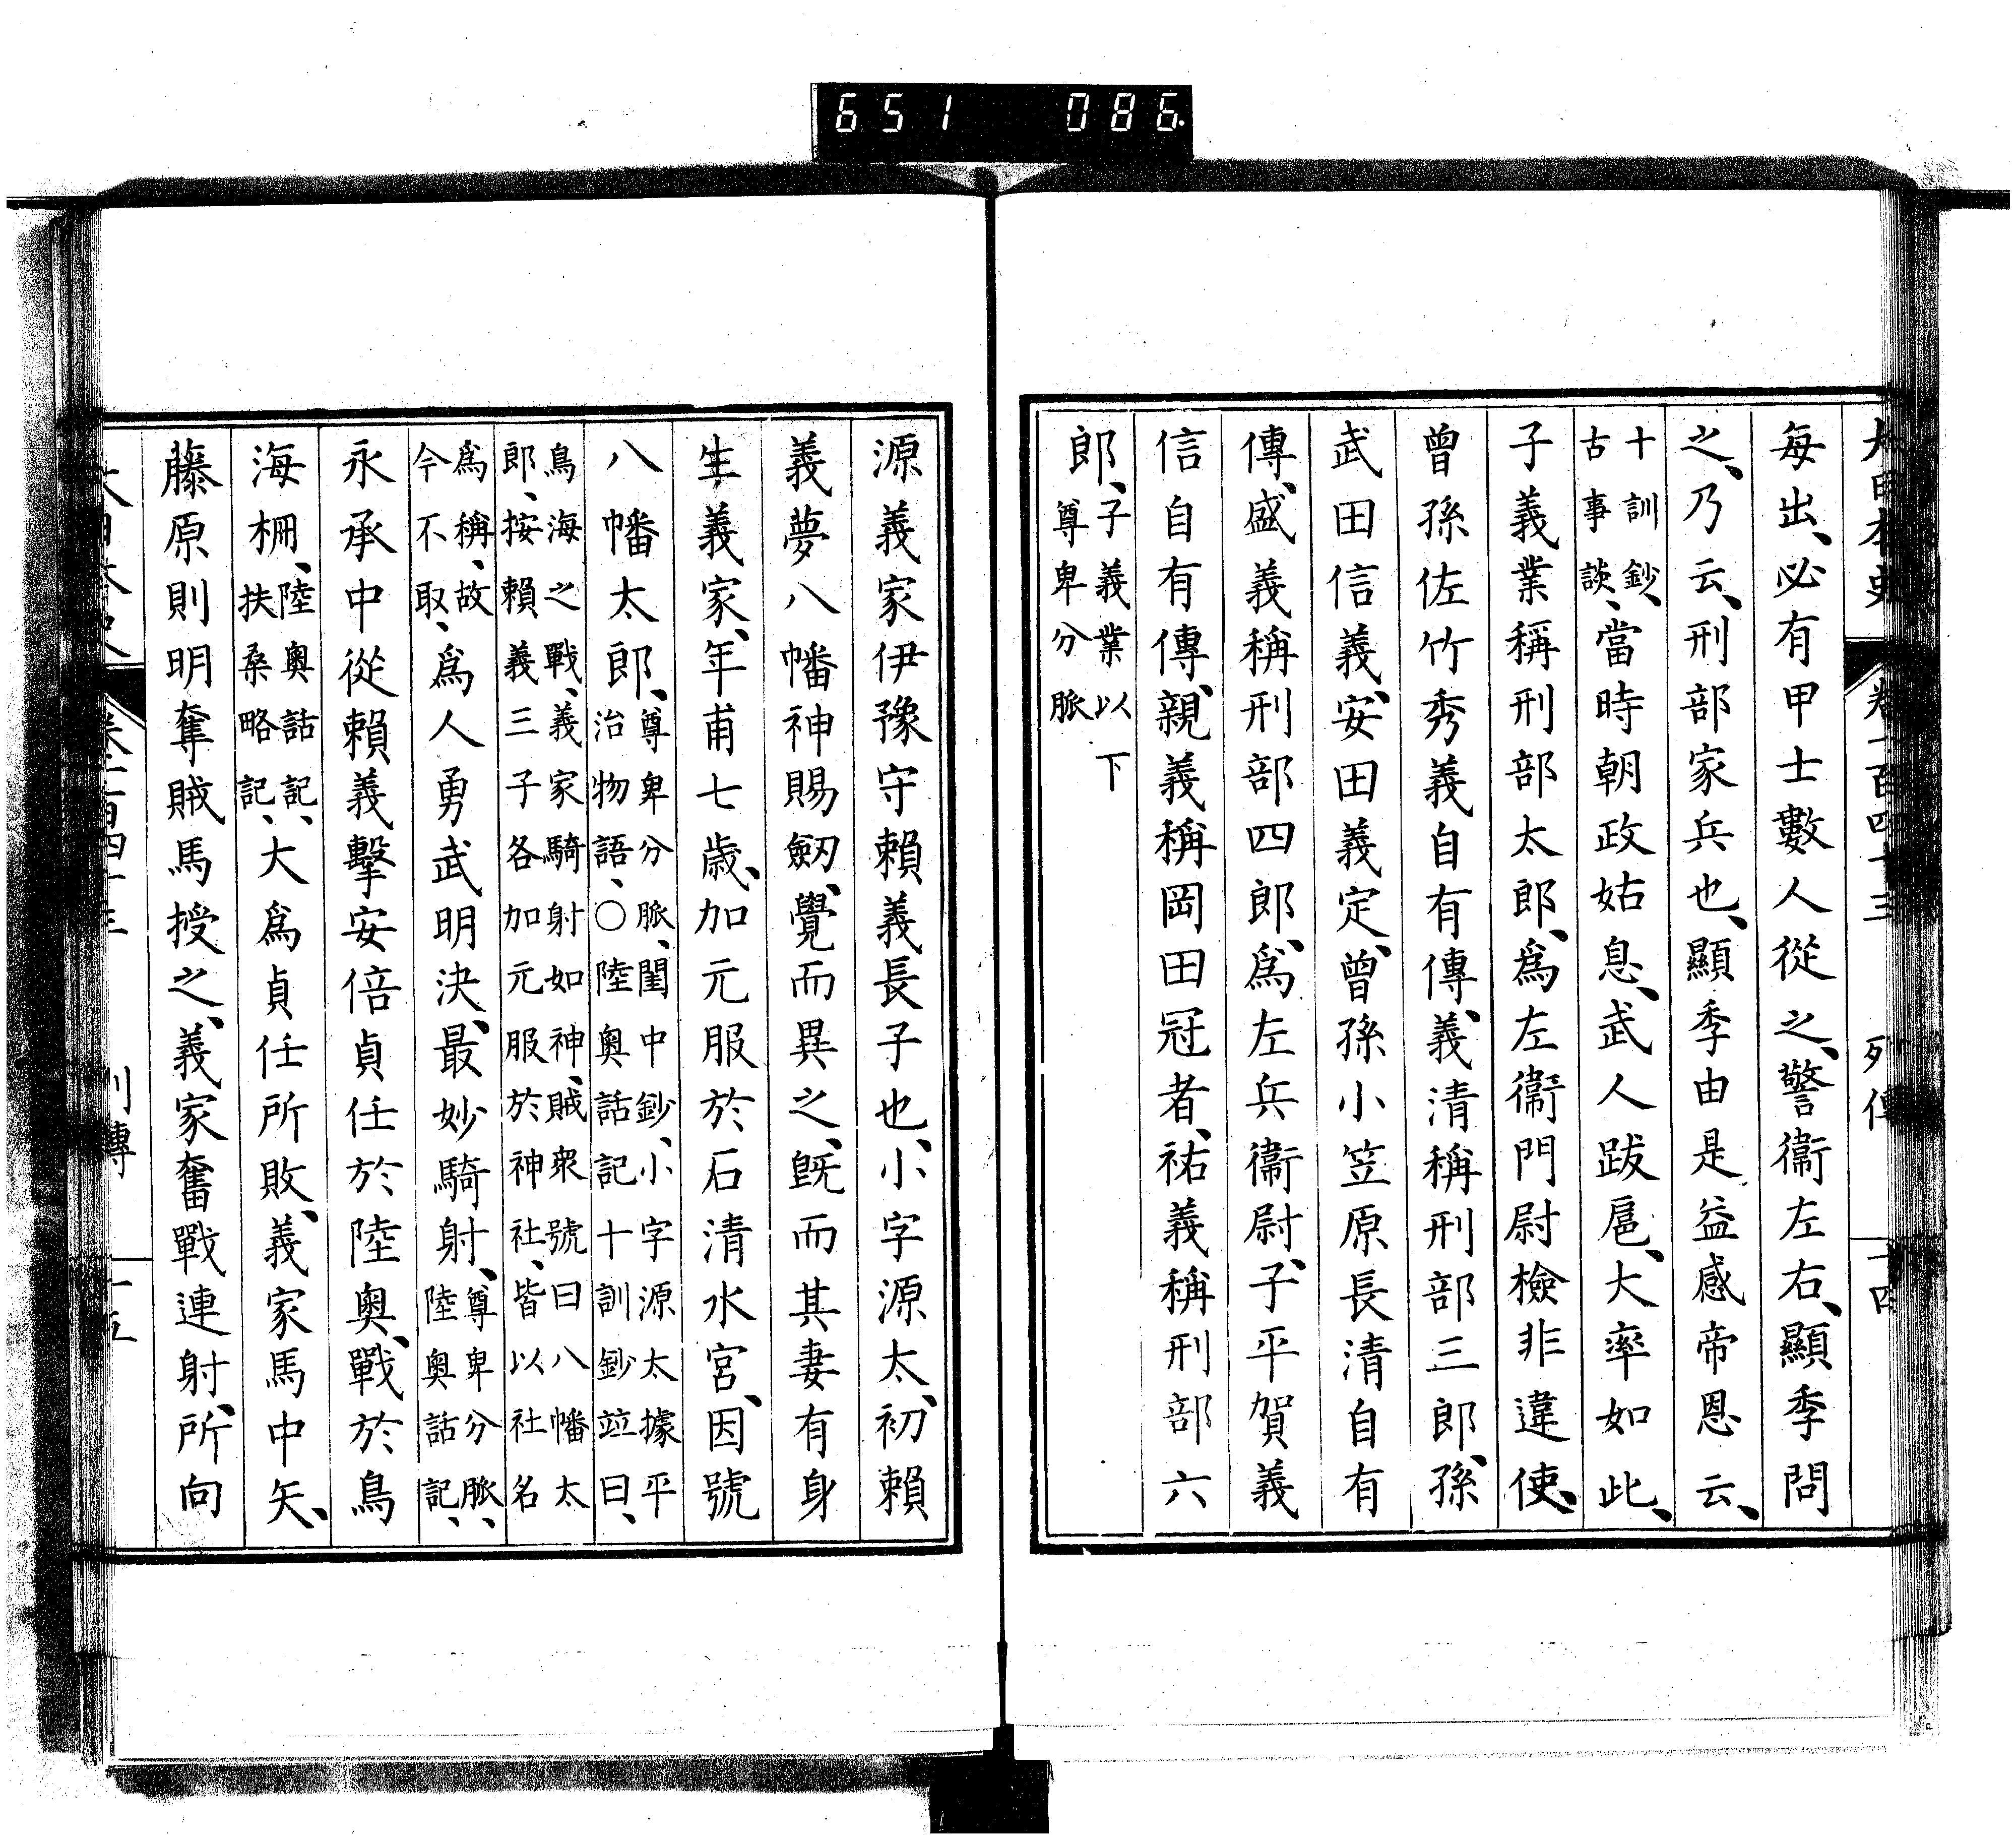 651 086
大日本史 卷一百四十三 列傳 十四
每出、必有甲士數人從之、警衞左右、顯季問
之、乃云、刑部家兵也、顯季由是益感帝恩云、
十訓鈔、
古事談、當時朝政姑息、武人跋扈、大率如此、
子義業稱刑部太郎、爲左衞門尉檢非違使、
曾孫佐竹秀義自有傳、義清稱刑部三郎、孫
武田信義、安田義定、曾孫小笠原長清自有
傳、盛義稱刑部四郎、爲左兵衞尉、子平賀義
信自有傳、親義稱岡田冠者、祐義稱刑部六
郎、子義業以下
尊卑分脈
源義家伊豫守賴義長子也、小字源太、初賴
義夢八幡神賜劒、覺而異之、既而其妻有身
生義家、年甫七歲、加元服於石清水宮、因號
八幡太郎、尊卑分脈、閨中鈔、小字源太據平
治物語、〇陸奧話記十訓鈔竝曰、
鳥海之戰、義家騎射如神、賊衆號曰八幡太
郎、按賴義三子各加元服於神社、皆以社名
爲稱、故
今不取、爲人勇武明決、最妙騎射、尊卑分脈、
陸奧話記、
永承中從賴義擊安倍貞任於陸奧、戰於鳥
海柵、陸奧話記、
扶桑略記、大爲貞任所敗、義家馬中矢、
藤原則明奪賊馬授之、義家奮戰連射、所向